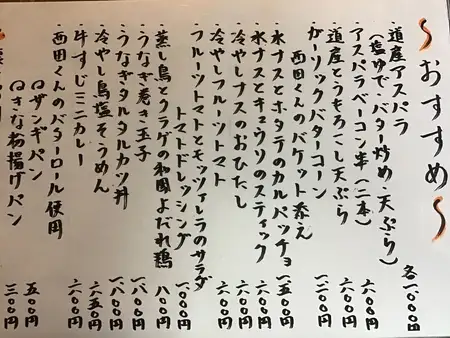 〜おすすめ〜
・道産アスパラ
(塩ゆで・バター炒め・天ぷら) 各一,〇〇〇円
・アスパラベーコン串(二本) 六〇〇円
・道産とうもろこし天ぷら 六〇〇円
・ガーリックバターコーン
西田くんのバケット添え 一,二〇〇円
・水ナスとホタテのカルパッチョ 一,五〇〇円
・水ナスとキュウリのスティック 六〇〇円
・冷やしナスのおひたし 六〇〇円
・冷やしフルーツトマト 六〇〇円
・フルーツトマトとモッツァレラのサラダ
トマトドレッシング 一,〇〇〇円
・蒸し鳥とクラゲの和風よだれ鶏 八〇〇円
・うなぎ巻き玉子 一,八〇〇円
・うなぎタルタルカツ丼 一,八〇〇円
・冷やし鳥塩そうめん 六五〇円
・牛すじミニカレー 六〇〇円
・西田くんのバターロール使用
ザンギパン 五〇〇円
きな粉揚げパン 三〇〇円